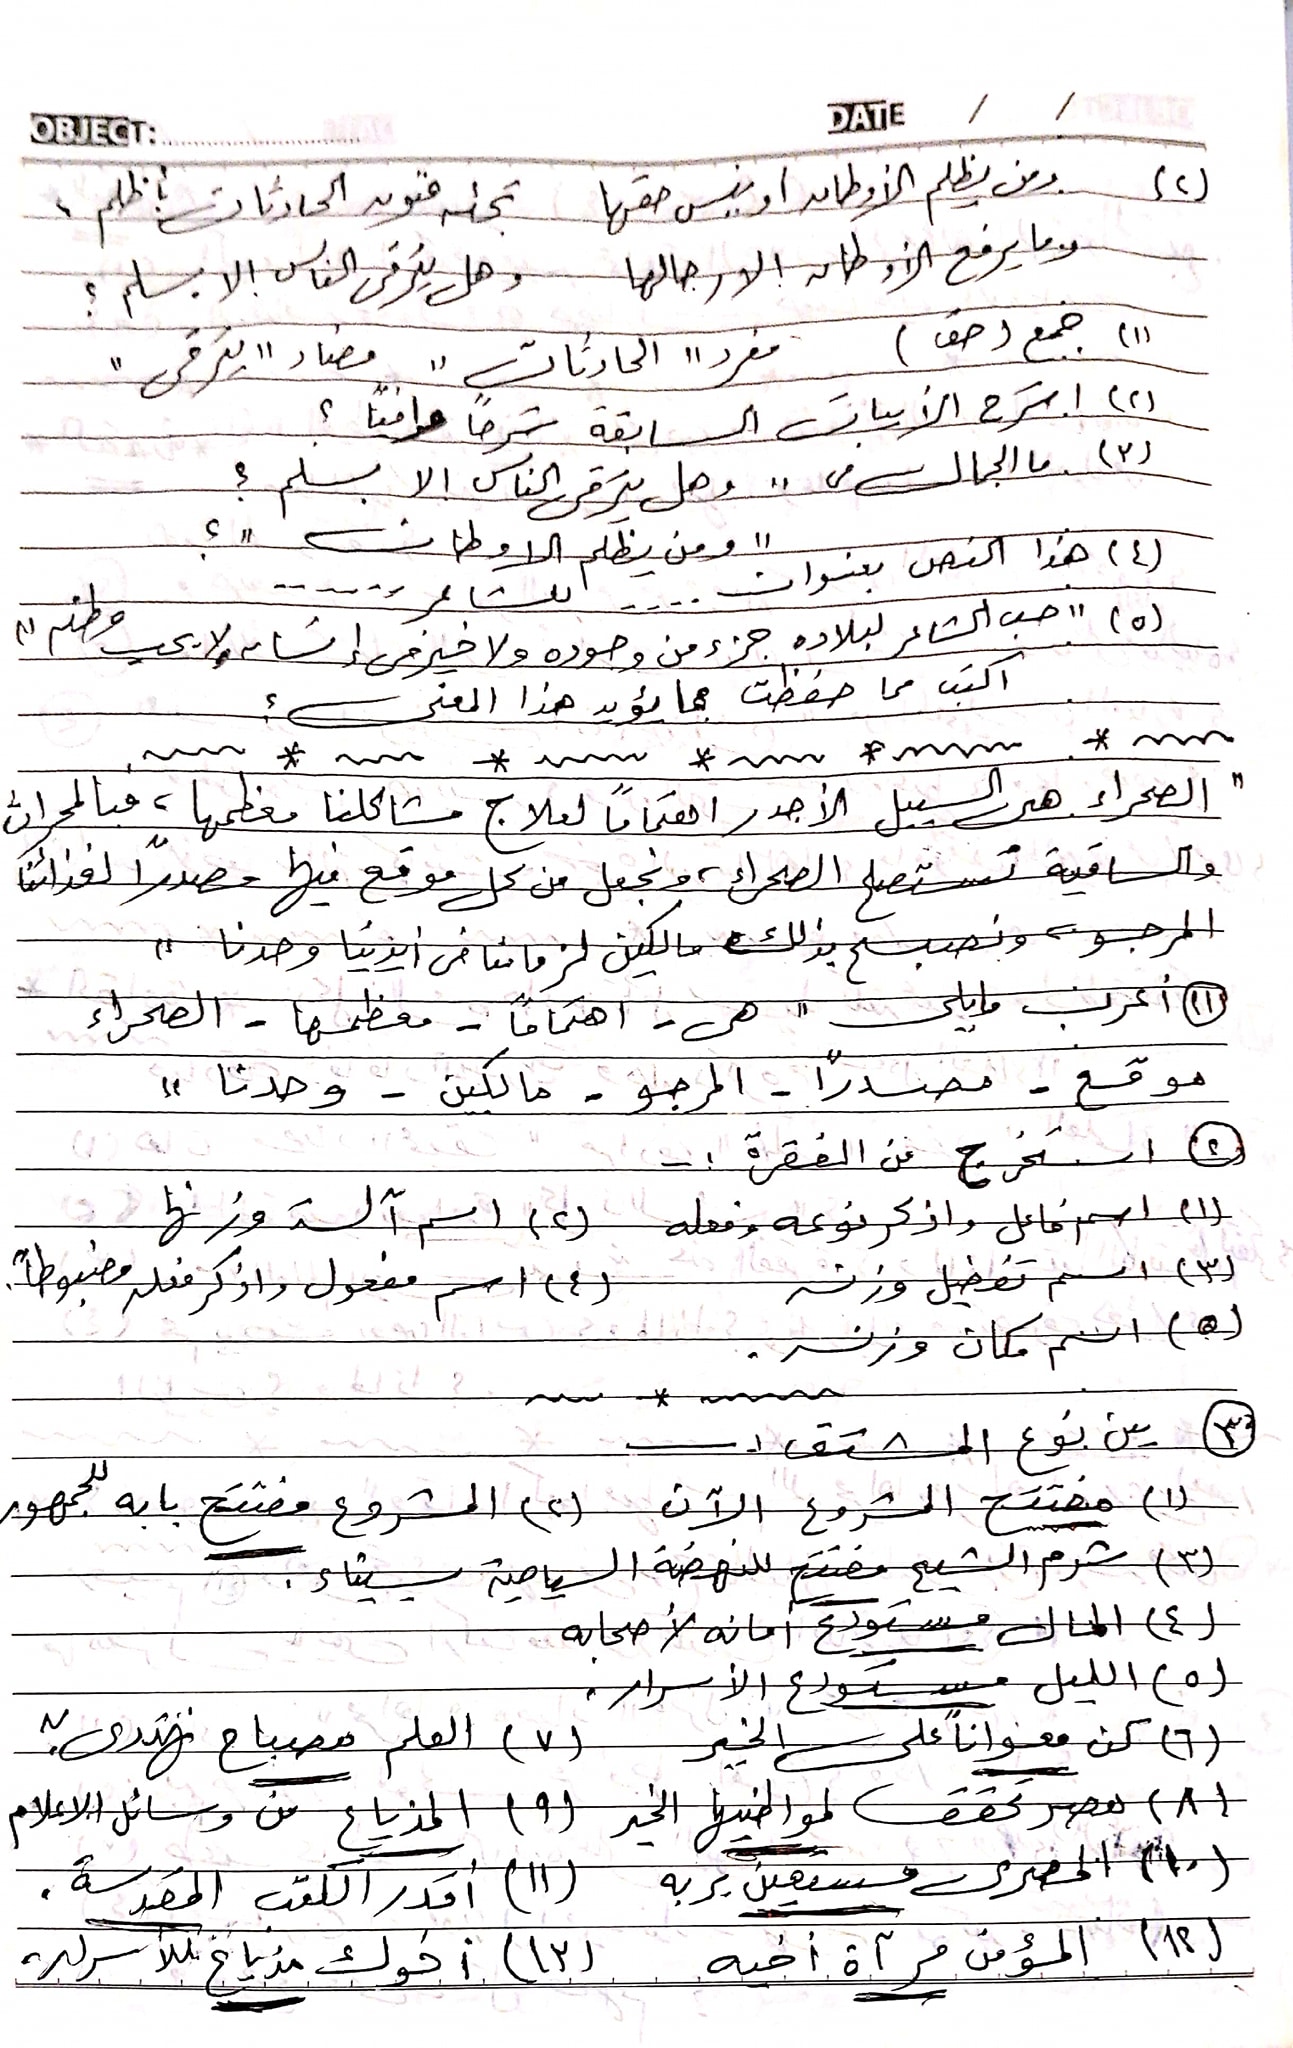 OBJECT: DATE / /
(٢) ومن يظلم الأوطان أو ينس حقها تجئه فنون الحادثات بأظلم ،
وما يرفع الأوطان إلا رجالها وهل يترقى الناس إلا بسلم ؟
(١) جمع (حق) مفرد "الحادثات" مضاد "يترقى"
(٢) اشرح الأبيات السابقة شرحًا وافيًا ؟
(٣) ما الجمال فى "وهل يترقى الناس إلا بسلم ؟
"ومن يظلم الاوطان" ؟
(٤) هذا النص بعنوان ..... للشاعر ......
(٥) "حب الشاعر لبلاده جزء من وجوده ولا خير فى إنسان لا يحب وطنه"
اكتب مما حفظت ما يؤيد هذا المعنى ؟
"الصحراء هى السبيل الأجدر اهتمامًا لعلاج مشاكلنا معظمها، فبالمحراث
والساقية تستصلح الصحراء، ونجعل من كل موقع فيها مصدرًا لغذائنا
المرجو، ونصبح بذلك مالكين لزمامنا فى أيدينا وحدنا"
(١) أعرب مايلى "هى - اهتمامًا - معظمها - الصحراء
موقع - مصدرًا - المرجو - مالكين - وحدنا"
(٢) استخرج من الفقرة :-
(١) اسم فاعل واذكر نوعه وفعله (٢) اسم آلة وزنها
(٣) اسم تفضيل وزنه (٤) اسم مفعول واذكر فعله مضبوطاً.
(٥) اسم مكان وزنه .
(٣) بين نوع المشتقات :-
(١) مفتتح المشروع الآن (٢) المشروع مفتتح بابه للجمهور
(٣) شرم الشيخ مفتتح للنهضة السياحية بسيناء .
(٤) المال مستودع أمانه لأصحابه
(٥) الليل مستودع الأسرار .
(٦) كن معواناً على الخير (٧) العلم مصباح نهتدى به
(٨) مصر تحقق لمواطنيها الخير (٩) المذياع من وسائل الاعلام
(١٠) المصرى مستعين بربه (١١) أقدر الكتب المقدسة .
(١٢) المؤمن مرآة أخيه (١٣) أخوك مذياع للأسرار .